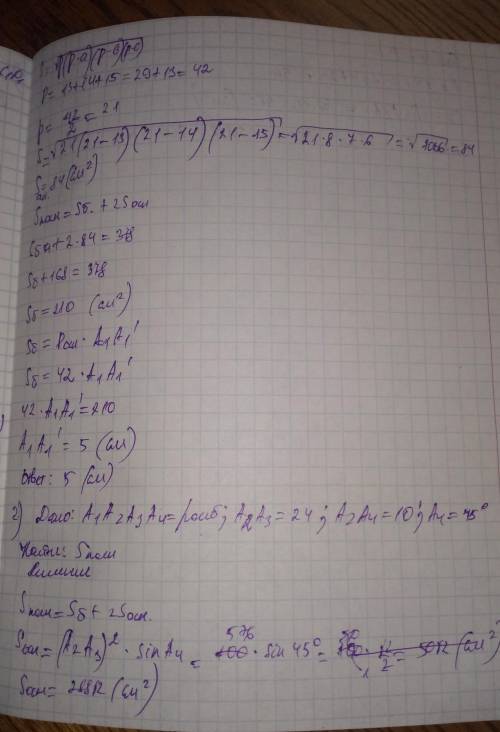 √p(p-a)(p-b)(p-c)
P = 13+14+15 = 29+13 = 42
p = 42/2 = 21
S = √21(21-13)(21-14)(21-15) = √21·8·7·6 = √7056 = 84
S = 84 (см²)
Sполн = Sб. + 2Sосн
Sбок + 2·84 = 378
Sб + 168 = 378
Sб = 210 (см²)
Sб = Pосн · A₁A₁'
Sб = 42 · A₁A₁'
42 · A₁A₁' = 210
A₁A₁' = 5 (см)
Ответ: 5 (см)
2) Дано: A₁A₂A₃A₄ = ромб; A₂A₃ = 24; A₂A₄ = 10; A₄ = 45°
Найти: Sполн
Sполн = Sб + 2Sосн.
Sосн = (A₂A₃)² · sin A₄ = 576 · sin 45° =
Sосн = 288√2 (см²)